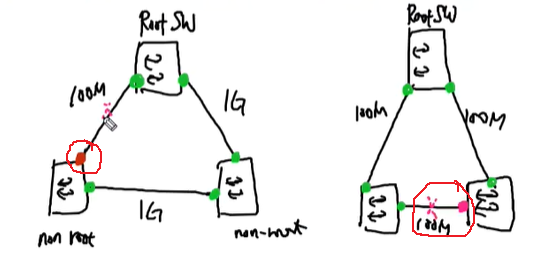 Root SW
100M
1G
1G
non root
non-root
Root SW
100M
100M
100M